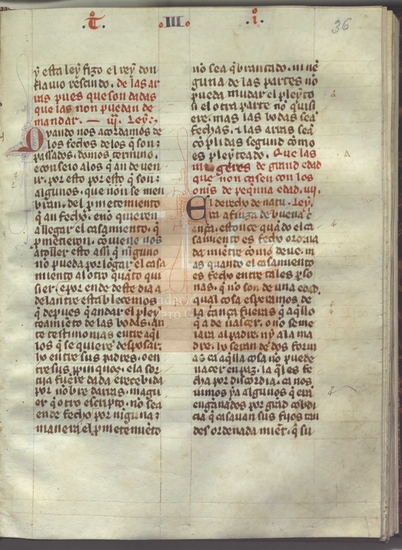 T. III. i.
36
y esta ley fizo el rey don
flauio rescindo. de las ar
ras pues que son dadas
que las non puedan de
mandar. — iij. Ley.
Quando nos acordamos de
los fechos de los q̃ son
passados. damos termino.
conseio a los que an de ueni
r. por esto por esto q̃ son
algunos. que non se mem
bran. del prometemiento
que an fecho. e no quieren
allegar el casamiento. que
prometieron. conuiene nos
a toller esto assi q̃ ninguno
no pueda alongar el casa
miento al otro quanto qui
sier. e por ende deste dia a
delantre establecemos
q̃ depues q̃ andar el pley
teamiento de las bodas. an
te testimonias entre aque
llos q̃ se quieren desposar.
o entre sus padres. o en
tre sus propinquos. e la sor
tija fuere dada e recebida
por nombre de arras. magu
er q̃ otro escripto. no sea
ende fecho por ninguna
manera el prometimiento
no sea q̃brantado. ni ne
guna de las partes no
pueda mudar el pleyto
si el otra parte no quisi
ere. mas las bodas sean
fechas. e las arras sean
complidas segund como
es pleyteado. Que las
mugeres de grand edad
que non casen con los
omes de pequena edad. iiij.
El derecho de natu Ley.
ra afinca de buena espe
rança. estonce quando el ca
samiento es fecho ordena
da mientre como deue. m
as quando el casamiento
es fecho entre tales perso
nas. que no son de una edad.
qual cosa esperamos de
la criança fueras q̃ aquello
que a de nascer. o no seme
iara al padre. ni a la ma
dre. o seran de dos formas
ca aquella cosa no puede
nacer en paz. la q̃l es fe
cha por discordia. ca nos
uimos ya algunos que eran
engannados por grand cobdi
cia q̃ casauan sus fijos tan
desordenada mientre. que su